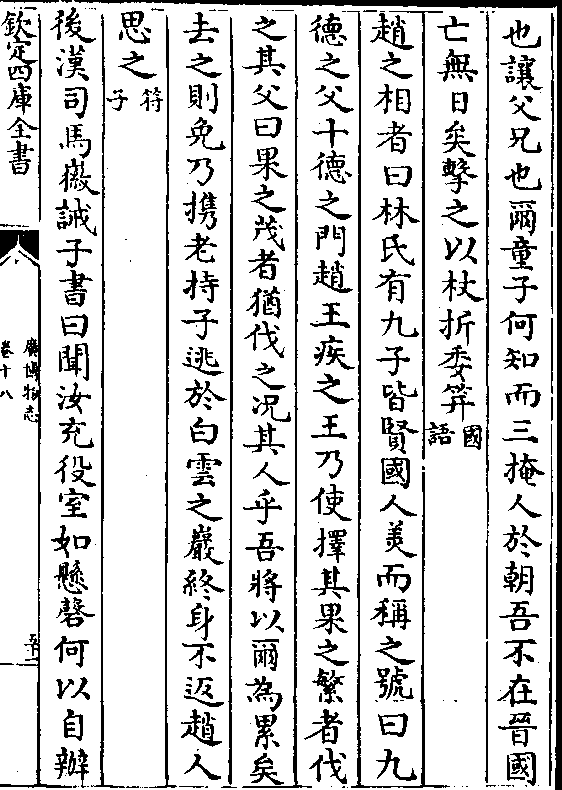 也讓父兄也爾童子何知而三掩人於朝吾不在晉國
亡無日矣擊之以杖折委笄國語
趙之相者曰林氏有九子皆賢國人美而稱之號曰九
德之父十德之門趙王疾之王乃使擇其果之繁者伐
之其父曰果之茂者猶伐之况其人乎吾將以爾為累矣
去之則免乃携老持子逃於白雲之巖終身不返趙人
思之符子
後漢司馬徽誡子書曰聞汝充役室如懸磬何以自辦
欽定四庫全書
廣博物志
卷十八